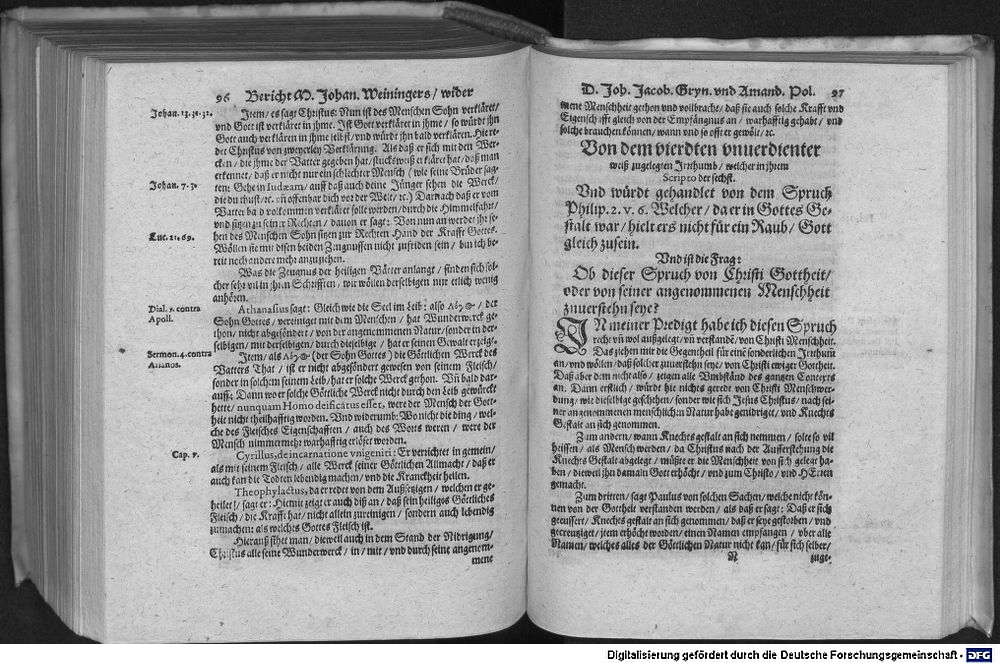 96 Bericht M. Johan. Weiningers / wider
Johan. 13. 31. 32.
Item / es sagt Christus: Nun ist des Menschen Sohn verkläret /
vnd Gott ist verkläret in jhme. Ist Gott verkläret in jhme / so würdt jhn
Gott auch verklären in jhme selbst / vnd würdt jhn bald verklären. Hie re-
det Christus von zweyerley Verklärung. Als daß er sich mit den Wer-
cken / die jhme der Vatter gegeben hat / stucksweiß erkläret hat / daß man
erkennet / daß er nicht nur ein schlechter Mensch / (wie seine Brüder sag-
Johan. 7. 3.
ten; Gehe in Iudæam / auff daß auch deine Jünger sehen die Werck /
die du thust / ꝛc. vñ offenbar dich vor der Welt / ꝛc.) Darnach daß er vom
Vatter bald vollkommen verkläret solle werden / durch die Himmelfahrt /
vnd sitzen zu seiner Rechten / dauon er sagt: Von nun an werdet jhr se-
Luc. 21. 69.
hen des Menschen Sohn sitzen zur Rechten Hand der Krafft Gottes.
Wöllen sie mit disen beiden Zeugnussen nicht zufriden sein / bin ich be-
reit noch andere mehr anzuziehen.
Was die Zeugnus der heiligen Vätter anlangt / finden sich sol-
cher sehr vil in jhren Schrifften / wir wöllen derselbigen nur etlich wenig
anhören.
Dial. 5. contra
Apoll.
Athanasius sagt: Gleich wie die Seel im Leib: also Λόγος / der
Sohn Gottes / vereiniget mit dem Menschen / hat Wunderwerck ge-
thon / nicht abgesöndert / von der angenommenen Natur / sonder in der-
selbigen / mit derselbigen / durch dieselbige / hat er seinen Gewalt erzeigt.
Sermon. 4. contra
Arianos.
Item / als Λόγος (der Sohn Gottes) die Göttlichen Werck des
Vatters That / ist er nicht abgesöndert gewesen von seinem Fleisch /
sonder in solchem seinem Leib / hat er solche Werck gethon. Vñ bald dar-
auff: Dann wo er solche Göttliche Werck nicht durch den Leib gewürckt
hette / nunquam Homo deificatus esset, were der Mensch der Gott-
heit nicht theilhafftig worden. Vnd widerumb: Wo nicht die ding / wel-
che des Fleisches Eigenschafften / auch des Worts weren / were der
Mensch nimmermehr warhafftig erlöset worden.
Cap. 5.
Cyrillus, de incarnatione vnigeniti: Er verrichtet in gemein /
als mit seinem Fleisch / alle Werck seiner Göttlichen Allmacht / daß er
auch kan die Todten lebendig machen / vnd die Kranckheit heilen.
Theophylactus, da er redet von dem Außsetzigen / welchen er ge-
heilet / sagt er: Hiemit zeigt er auch diß an / daß sein heiliges Göttliches
Fleisch / die Krafft hat / nicht allein zureinigen / sondern auch lebendig
zumachen: als welches Gottes Fleisch ist.
Hierauß sihet man / die weil auch in dem Stand der Nidrigung /
Christus alle seine Wunderwerck / in / mit / vnd durch seine angenom-
mene
D. Joh. Jacob. Gryn. vnd Amand. Pol. 97
mene Menschheit gethon vnd vollbracht / daß sie auch solche Krafft vnd
Eigenschafft gleich von der Empfängnus an / warhafftig gehabt / vnd
solche brauchen können / wann vnd so offt er gewölt / ꝛc.
Von dem vierdten vnuerdienter
weiß zugelegten Irrthumb / welcher in jhrem
Scripto der sechst.
Vnd würdt gehandlet von dem Spruch
Philip. 2. v. 6. Welcher / da er in Gottes Ge-
stalt war / hielt ers nicht für ein Raub / Gott
gleich zusein.
Vnd ist die Frag:
Ob dieser Spruch von Christi Gottheit /
oder von seiner angenommenen Menschheit
zuuerstehn seye?
IN meiner Predigt habe ich diesen Spruch
recht vñ wol außgelegt / vñ verstandē / von Christi Menschheit.
Das ziehen mir die Gegentheil für einē sonderlichen Irrthum
an / vnd wöllen / daß solcher zuuerstehn seye / von Christi ewiger Gottheit.
Daß aber dem nicht also / zeigen alle Vmbständ des gantzen Contexts
an. Dann erstlich / würdt hie nichts geredt von Christi Menschwer-
dung / wie dieselbige geschehen / sonder wie sich Jesus Christus / nach sei-
ner angenommenen menschlichen Natur habe genidriget / vnd Knechts
Gestalt an sich genommen.
Zum andern / wann Knechts gestalt an sich nemmen / solte so vil
heissen / als Mensch werden / da Christus nach der Aufferstehung die
Knechts Gestalt abgelegt / müßte er die Menschheit von sich gelegt ha-
ben / dieweil jhn damaln Gott erhöcht / vnd zum Christo / vnd HErren
gemacht.
Zum dritten / sagt Paulus von solchen Sachen / welche nicht kön-
nen von der Gottheit verstanden werden / als daß er sagt: Daß er sich
geeussert / Knechts gestalt an sich genommen / daß er seye gestorben / vnd
gecreutziget / jtem erhöcht worden / einen Namen empfangen / vber alle
Namen / welches alles der Göttlichen Natur nicht kan / für sich selber /
N zuge-
Digitalisierung gefördert durch die Deutsche Forschungsgemeinschaft - DFG